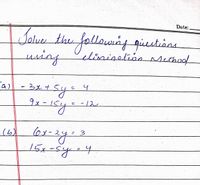 Date:
Solve the following questions
using elimination method
(a) - 3x + 5y = 4
9x - 15y = -12
(b) 6x - 2y = 3
15x - 5y = 4